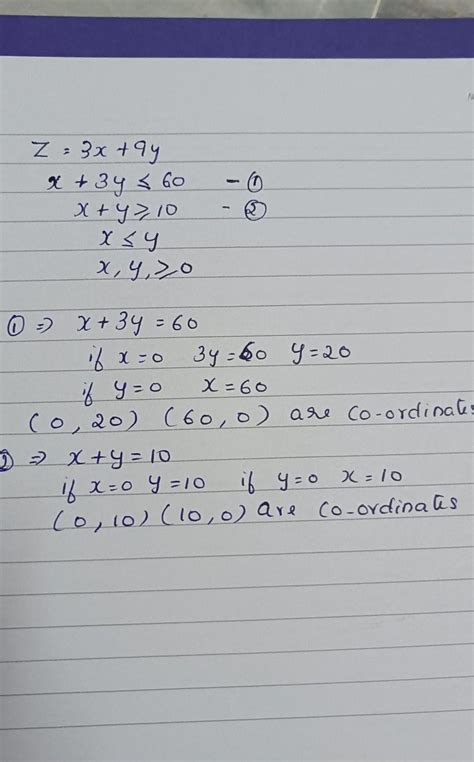 Z = 3x + 9y
x + 3y ≤ 60 - ①
x + y ≥ 10 - ②
x ≤ y
x, y, ≥ 0
① ⇒ x + 3y = 60
if x = 0 3y = 60 y = 20
if y = 0 x = 60
(0, 20) (60, 0) are co-ordinates
② ⇒ x + y = 10
if x = 0 y = 10 if y = 0 x = 10
(0, 10) (10, 0) are co-ordinates